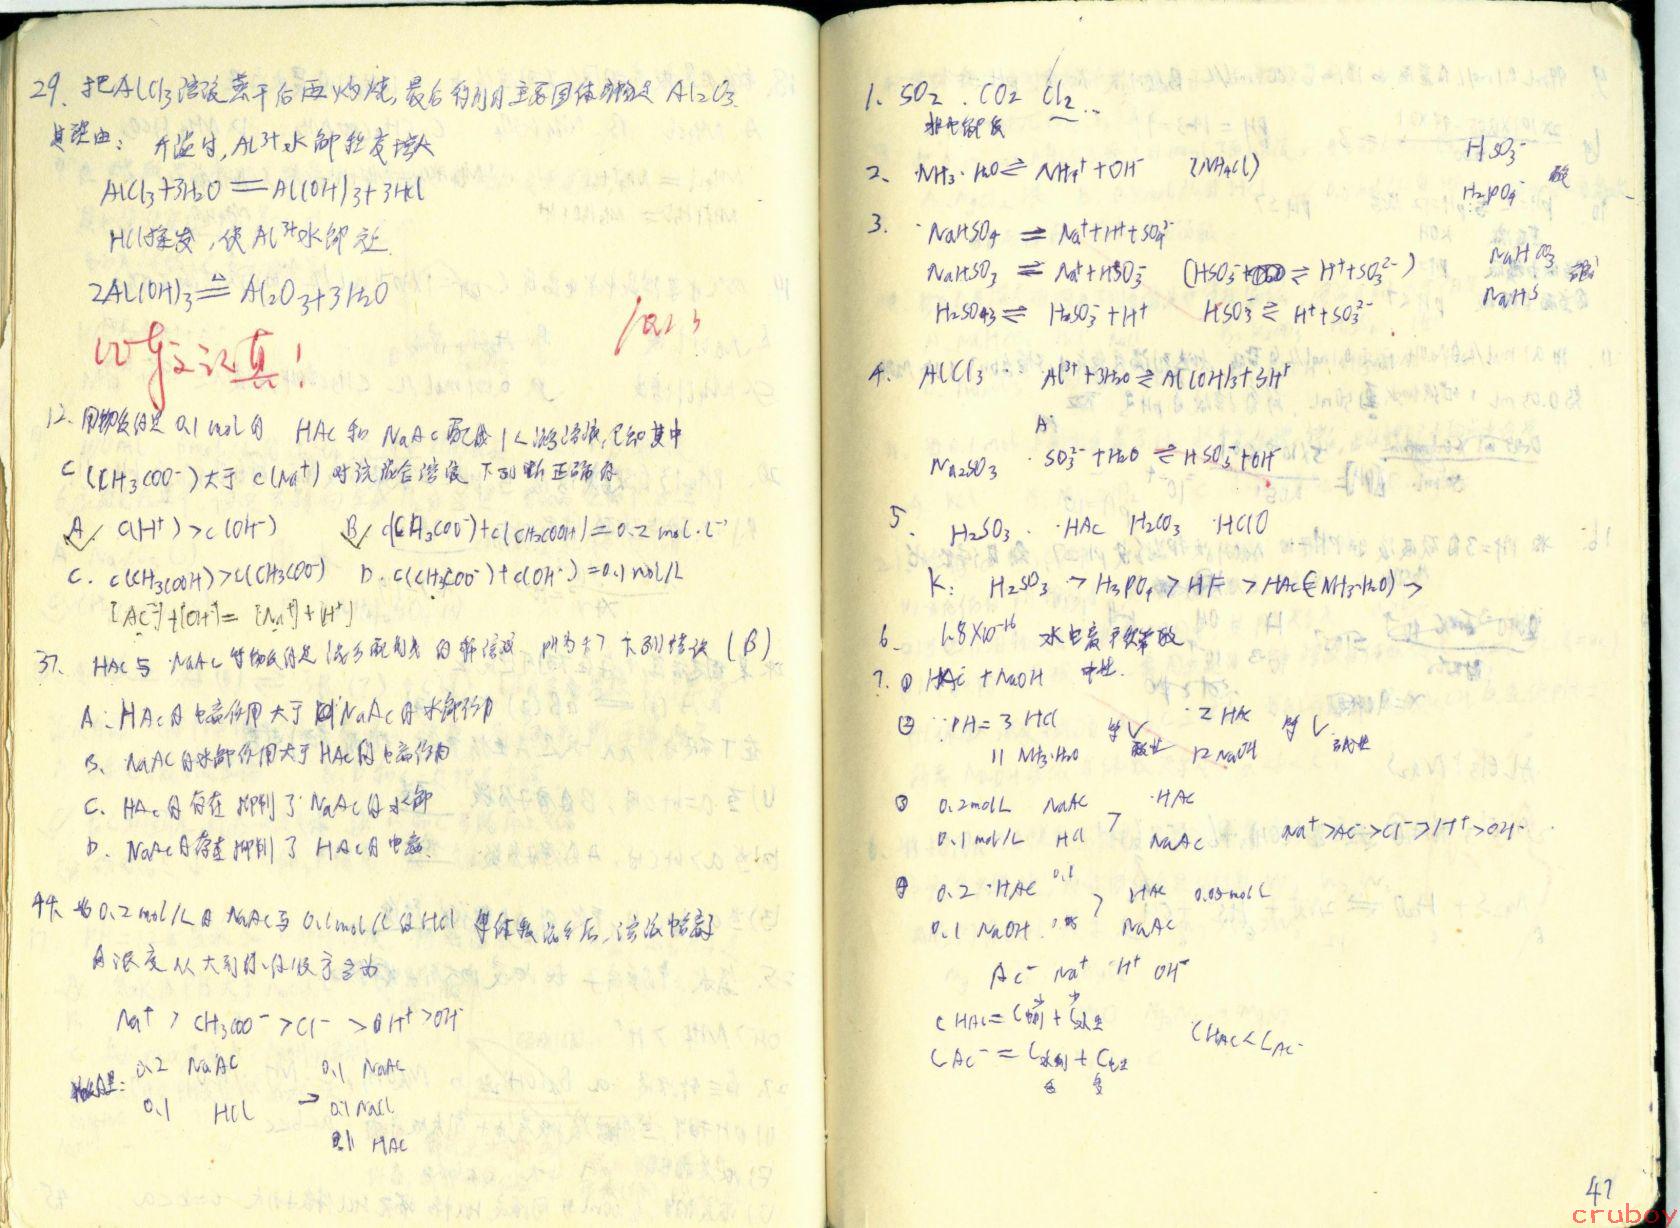 29. 把AlCl3溶液蒸干后再灼烧,最后得到的主要固体产物是 Al2O3.
其理由: 升温时,Al³⁺水解程度增大
AlCl3+3H2O══Al(OH)3+3HCl
HCl挥发,使Al³⁺水解
2Al(OH)3══△Al2O3+3H2O
以后认真!
12. 用物质的量 0.1 mol的 HAc 和 NaAc 配成 1L 混合溶液,已知其中
C(CH3COO⁻)大于 c(Na⁺) 对该混合溶液下列判断正确的
A✓ c(H⁺)>c(OH⁻) B✓ c(CH3COO⁻)+c(CH3COOH)=0.2mol·L⁻¹
C. c(CH3COOH)>c(CH3COO⁻) D. c(CH3COO⁻)+c(OH⁻)=0.1mol/L
[Ac⁻]+[OH⁻]=[Na⁺]+[H⁺]
37. HAc与NaAc等物质的量混合配制成的稀溶液 pH为4.7 下列错误 (B)
A. HAc的电离作用大于NaAc的水解作用
B. NaAc的水解作用大于HAc的电离作用
C. HAc的存在抑制了NaAc的水解
D. NaAc的存在抑制了HAc的电离.
44. 当0.2mol/L的NaAc与0.1mol/L的HCl等体积混合后,溶液中
的浓度从大到小的次序应为
Na⁺>CH3COO⁻>Cl⁻>H⁺>OH⁻
物质的量: 0.2 NaAc 0.1 NaAc
0.1 HCl → 0.1 NaCl
0.1 HAc
1. SO2 . CO2 Cl2 ...
非电解质
2. NH3·H2O⇌NH4⁺+OH⁻ (NH4Cl)
HSO3⁻
H2PO4⁻ 酸
3. NaHSO4 ⇌ Na⁺+H⁺+SO4²⁻
NaHSO3 ⇌ Na⁺+HSO3⁻ (HSO3⁻⇌H⁺+SO3²⁻)
NaHCO3
NaHS
H2SO3⇌ HSO3⁻+H⁺ HSO3⁻⇌H⁺+SO3²⁻
4. AlCl3 Al³⁺+3H2O⇌Al(OH)3+3H⁺
A
Na2SO3 SO3²⁻+H2O⇌HSO3⁻+OH⁻
5. H2SO3 HAc H2CO3 HClO
K: H2SO3 > H3PO4 > HF > HAc(≈NH3·H2O) >
6. 1.8×10⁻¹⁶ 水电离平衡常数
7. ① HAc+NaOH 中性.
② PH=3 HCl 等V 2 HAc 等V
11 NH3·H2O 碱性 12 NaOH 酸性
③ 0.2mol/L NaAc > HAc
0.1mol/L HCl NaAc Na⁺>Ac⁻>Cl⁻>H⁺>OH⁻
④ 0.2 HAc 0.1 > HAc 0.05mol/L
0.1 NaOH 0.05 NaAc
Ac⁻ Na⁺ H⁺ OH⁻
CHAc=C剩+C水生
CHAc<CAc⁻
CAc⁻=C水剩+C电生
多 多
47
cruboy